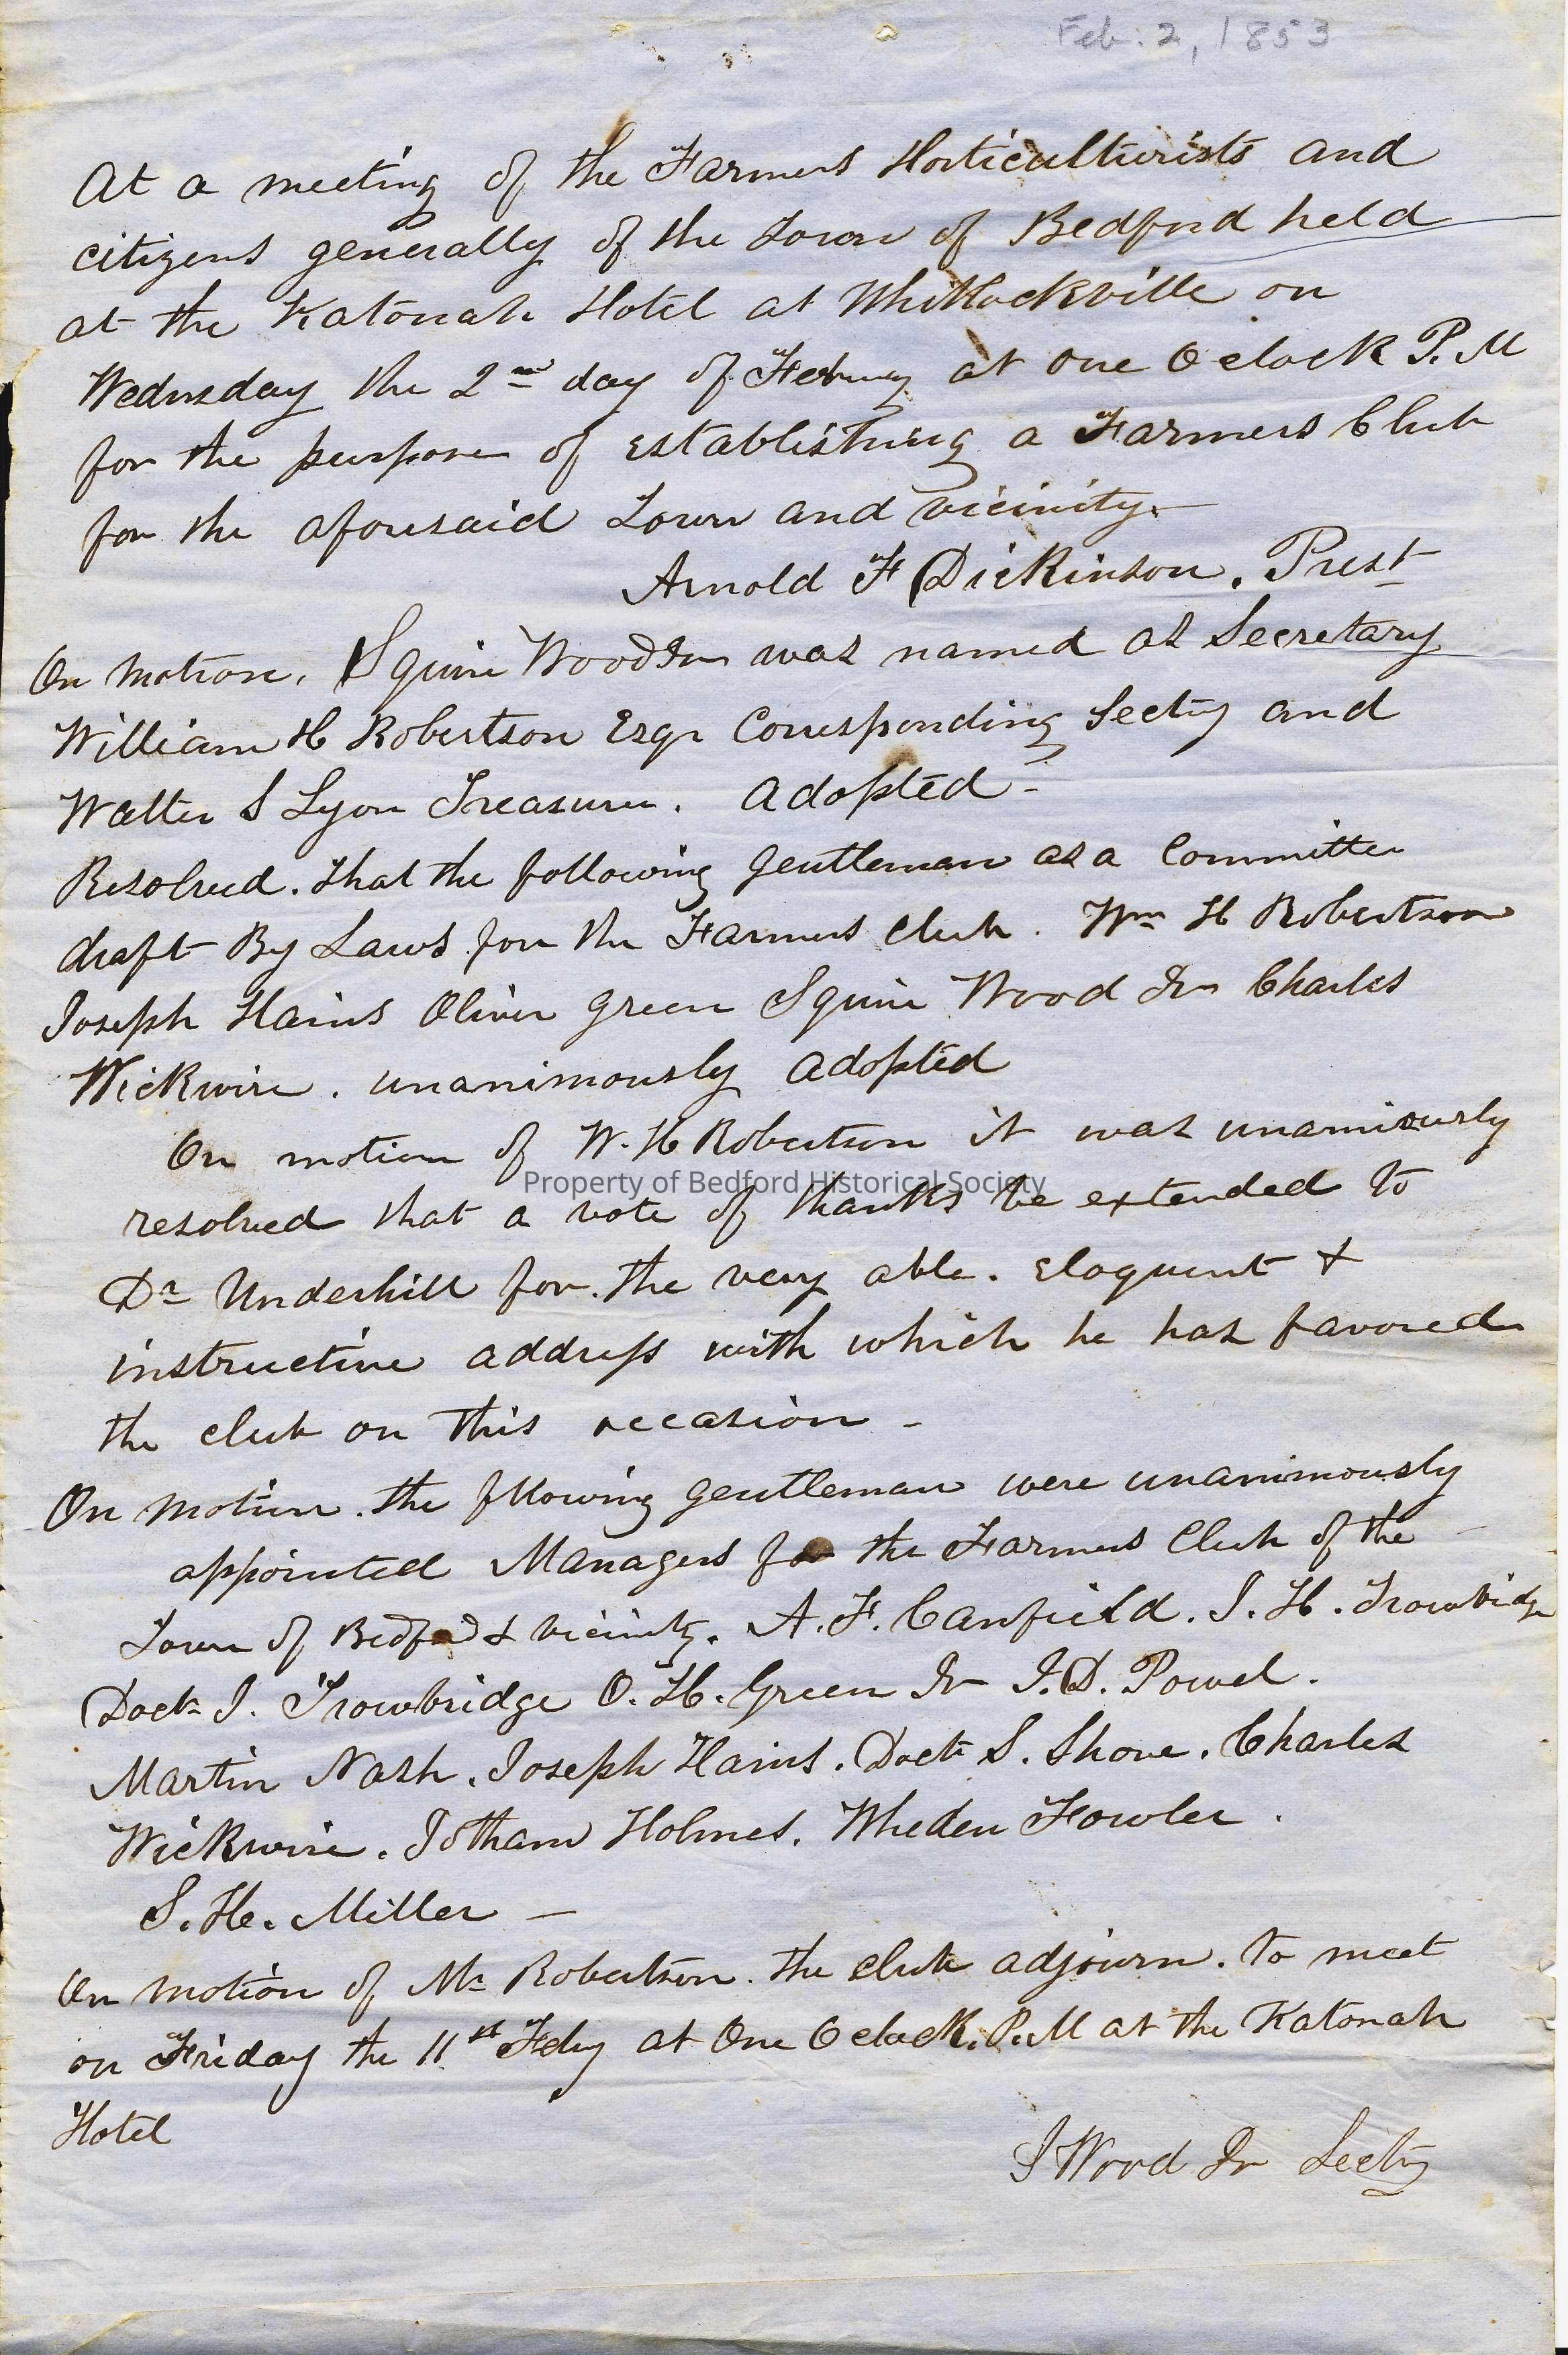 Feb. 2, 1853
At a meeting of the Farmers Horticulturists and
citizens generally of the Town of Bedford held
at the Katonah Hotel at Whitlockville on
Wednesday the 2nd day of Februay at one O clock P. M
for the purpose of Establishing a Farmers Club
for the aforesaid Town and vicinity.
Arnold F Dickinson. Prest
On motion, Squire Wood Jr was named as Secretary
William H Robertson Esqr Corresponding Secty and
Walter S Lyon Treasurer. Adopted -
Resolved. that the following Gentleman as a Committee
draft By Laws for the Farmers Club. Wm H Robertson
Joseph Hains Oliver Green Squire Wood Jr Charles
Wickwire. unanimously adopted
On motion of W. H Robertson it was unamiously
resolved that a vote of thanks be extended to
Property of Bedford Historical Society
Dr Underhill for the very able. Eloquent &
instructive address with which he has favored
the club on this occasion -
On motion. the fllowing Gentleman were unanimously
appointed Managers for the Farmers Club of the
Town of Bedford & vicinity. A. F. Canfield. J. H. Trowbridge
Doct. J. Trowbridge O. H. Green Jr J. D. Powel.
Martin Nash. Joseph Hains. Doct S. Shove. Charles
Wickwire. Jotham Holmes. Wheden Fowler.
S. He. Miller —
On motion of Mr Robertson. the club adjourn. to meet
on Friday the 11st Feby at One O clock. P. M at the Katonah
Hotel
S Wood Jr Secty